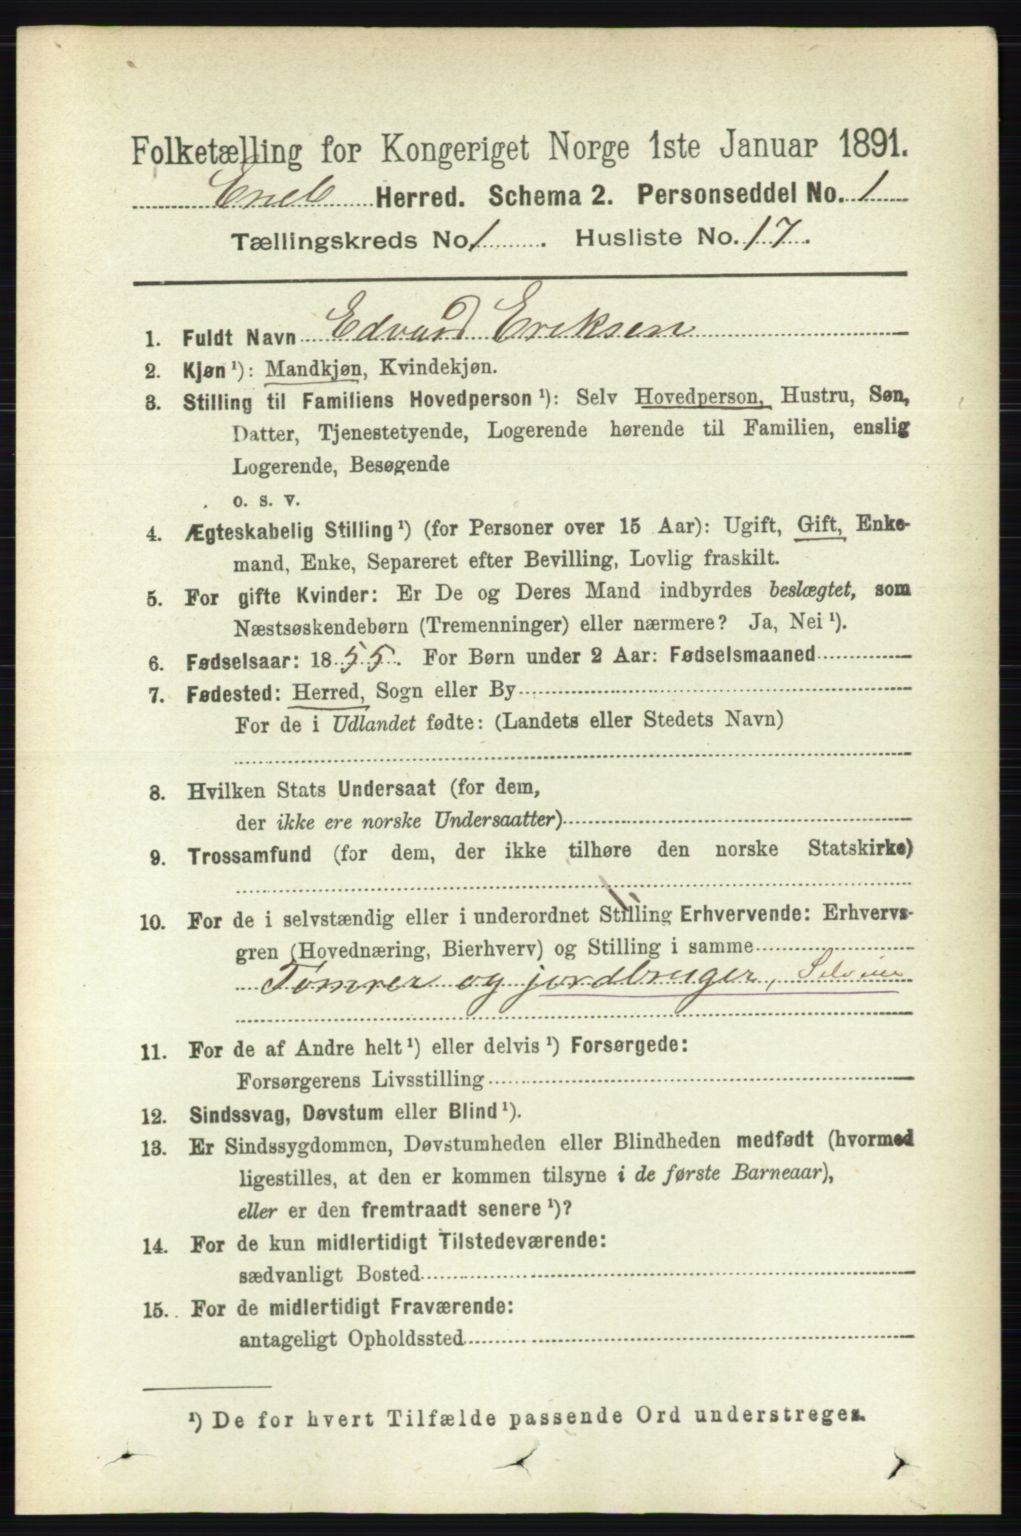 Folketælling for Kongeriget Norge 1ste Januar 1891.
Eneb Herred. Schema 2. Personseddel No. 1
Tællingskreds No. 1. Husliste No. 17.
1. Fuldt Navn Edvard Eriksen
2. Kjøn ¹): Mandkjøn, Kvindekjøn.
3. Stilling til Familiens Hovedperson ¹): Selv Hovedperson, Hustru, Søn,
Datter, Tjenestetyende, Logerende hørende til Familien, enslig
Logerende, Besøgende
o. s. v.
4. Ægteskabelig Stilling ¹) (for Personer over 15 Aar): Ugift, Gift, Enke-
mand, Enke, Separeret efter Bevilling, Lovlig fraskilt.
5. For gifte Kvinder: Er De og Deres Mand indbyrdes beslægtet, som
Næstsøskendebørn (Tremenninger) eller nærmere? Ja, Nei ¹).
6. Fødselsaar: 1855. For Børn under 2 Aar: Fødselsmaaned
7. Fødested: Herred, Sogn eller By
For de i Udlandet fødte: (Landets eller Stedets Navn)
8. Hvilken Stats Undersaat (for dem,
der ikke ere norske Undersaatter)
9. Trossamfund (for dem, der ikke tilhøre den norske Statskirke)
10. For de i selvstændig eller i underordnet Stilling Erhvervende: Erhvervs-
gren (Hovednæring, Bierhverv) og Stilling i samme
Tømrer og jordbruger, Selveier
11. For de af Andre helt ¹) eller delvis ¹) Forsørgede:
Forsørgerens Livsstilling
12. Sindssvag, Døvstum eller Blind ¹).
13. Er Sindssygdommen, Døvstumheden eller Blindheden medfødt (hvormed
ligestilles, at den er kommen tilsyne i de første Barneaar),
eller er den fremtraadt senere ¹)?
14. For de kun midlertidigt Tilstedeværende:
sædvanligt Bosted
15. For de midlertidigt Fraværende:
antageligt Opholdssted
¹) De for hvert Tilfælde passende Ord understreges.